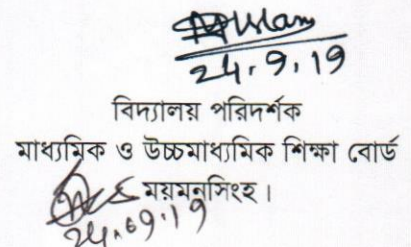 24.9.19
বিদ্যালয় পরিদর্শক
মাধ্যমিক ও উচ্চমাধ্যমিক শিক্ষা বোর্ড
ময়মনসিংহ।
24.09.19